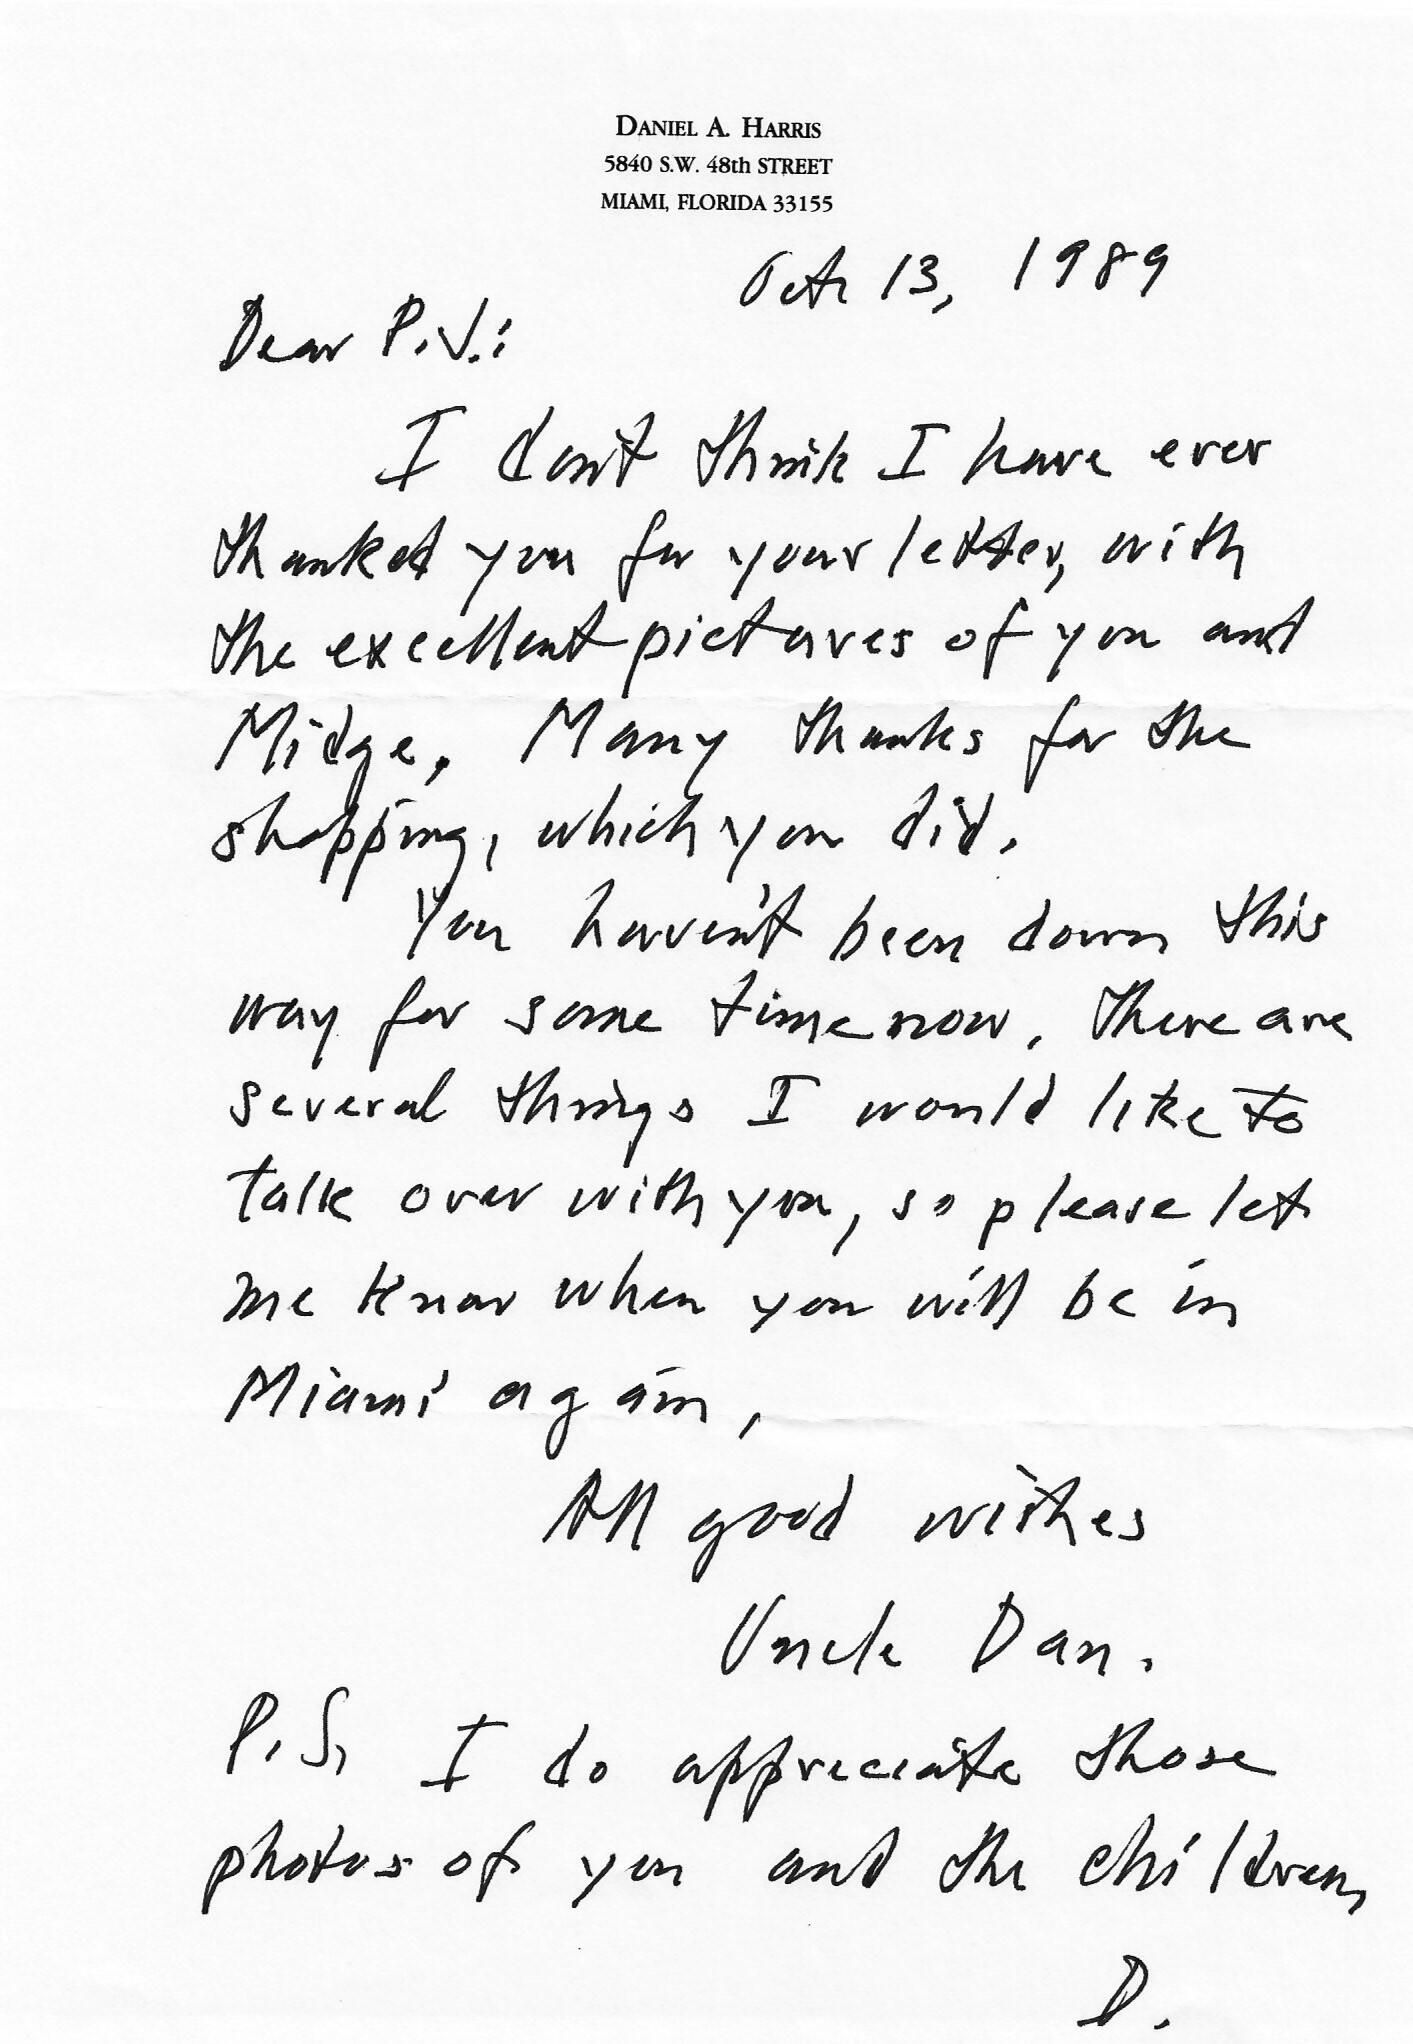 DANIEL A. HARRIS
5840 S.W. 48th STREET
MIAMI, FLORIDA 33155
Oct 13, 1989
Dear P.V.:
I don't think I have ever
thanked you for your letter, with
the excellent pictures of you and
Midge. Many thanks for the
shopping, which you did.
You haven't been down this
way for some time now. There are
several things I would like to
talk over with you, so please let
me know when you will be in
Miami again,
All good wishes
Uncle Dan.
P.S. I do appreciate those
photos of you and the children,
D.